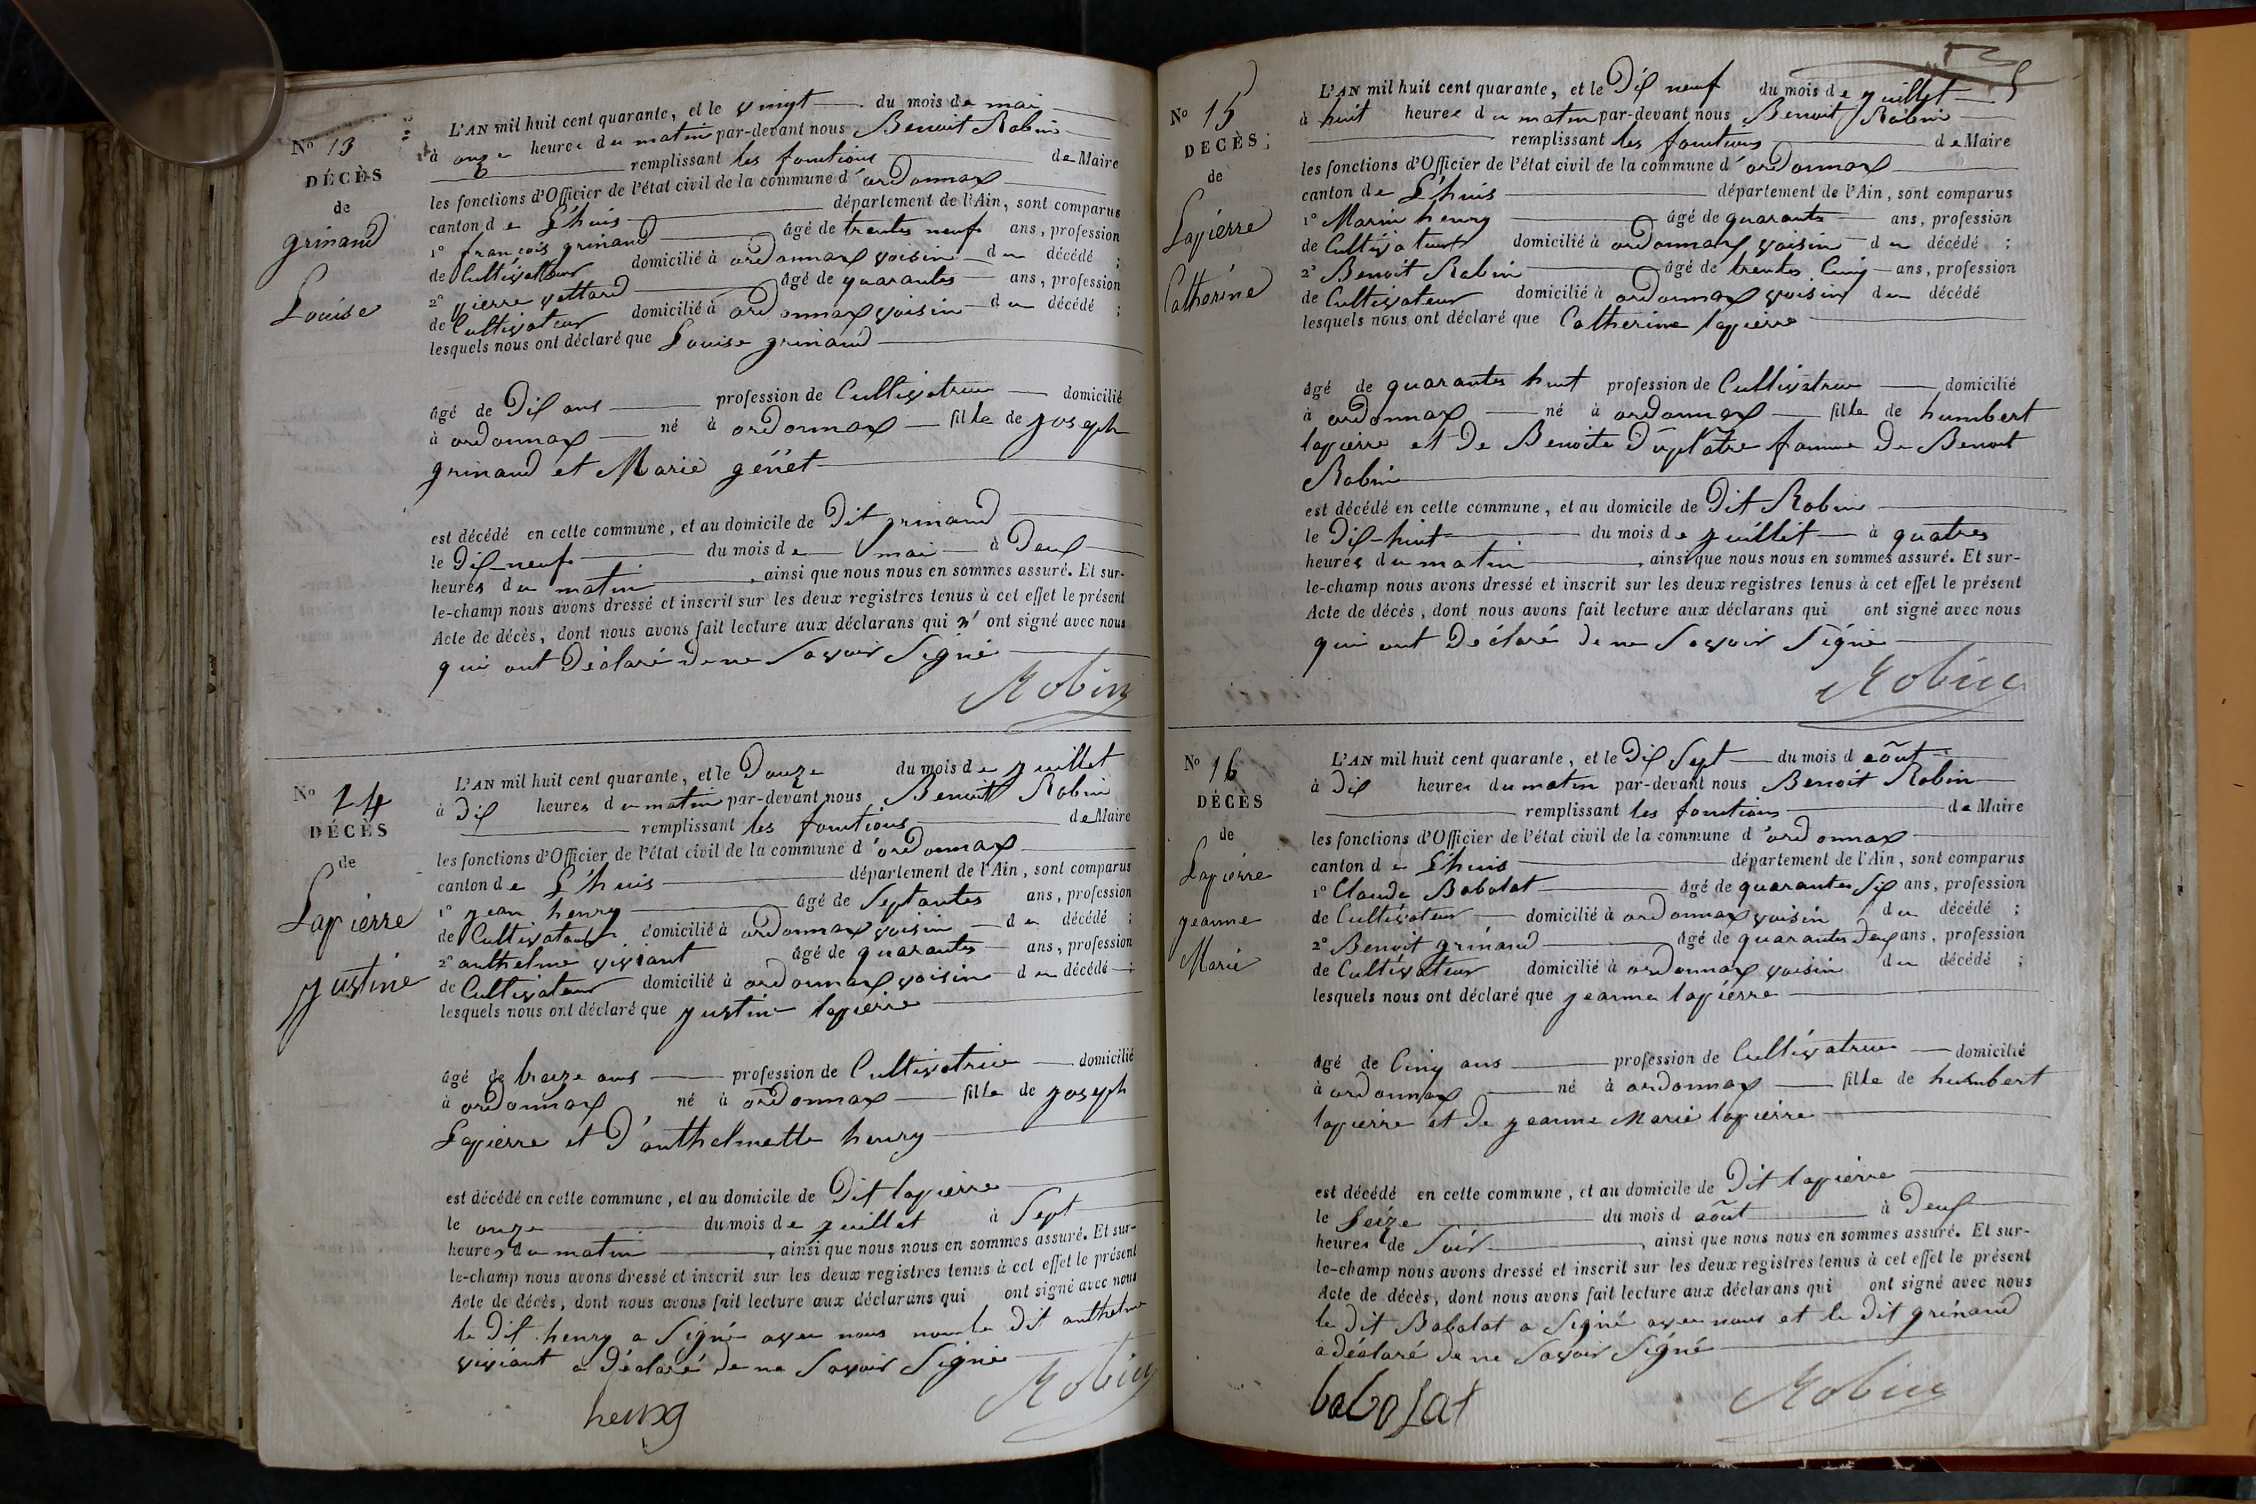 No 13
DÉCÈS
de
grinand
Louise
L'AN mil huit cent quarante, et le vingt du mois de mai
à onze heures du matin par-devant nous Benoit Robin
remplissant les fonctions de Maire
les fonctions d'Officier de l'état civil de la commune d'ordonnax
canton de L'huis département de l'Ain, sont comparus
1° françois grinand âgé de trentes neuf ans, profession
de Cultivateur domicilié à ordonnax voisin du décédé ;
2° pierre vettard âgé de quarantes ans, profession
de Cultivateur domicilié à ordonnax voisin du décédé ;
lesquels nous ont déclaré que Louise grinand
âgé de Dix ans profession de Cultivatrice domicilié
à ordonnax né à ordonnax fille de joseph
grinand et Marie génet
est décédé en cette commune, et au domicile de Dit grinand
le Dix-neuf du mois de mai à Deux
heures du matin, ainsi que nous nous en sommes assuré. Et sur-
le-champ nous avons dressé et inscrit sur les deux registres tenus à cet effet le présent
Acte de décès, dont nous avons fait lecture aux déclarans qui n'ont signé avec nous
qui ont Déclaré de ne Savoir Signé
Robin
No 14
DÉCÈS
de
Lapierre
justine
L'AN mil huit cent quarante, et le Douze du mois de juillet
à Dix heures du matin par-devant nous Benoit Robin
remplissant les fonctions de Maire
les fonctions d'Officier de l'état civil de la commune d'ordonnax
canton de L'huis département de l'Ain, sont comparus
1° jean henry âgé de Septantes ans, profession
de Cultivateur domicilié à ordonnax voisin du décédé ;
2° anthelme viviant âgé de quarantes ans, profession
de Cultivateur domicilié à ordonnax voisin du décédé ;
lesquels nous ont déclaré que justine lapierre
âgé de treize ans profession de Cultivatrice domicilié
à ordonnax né à ordonnax fille de joseph
Lapierre et D'anthelmette henry
est décédé en cette commune, et au domicile de Dit lapierre
le onze du mois de juillet à Sept
heures du matin, ainsi que nous nous en sommes assuré. Et sur-
le-champ nous avons dressé et inscrit sur les deux registres tenus à cet effet le présent
Acte de décès, dont nous avons fait lecture aux déclarans qui ont signé avec nous
le Dit henry a Signé avec nous le Dit anthelme
viviant a Déclaré de ne Savoir Signé
Robin
henry
No 15
DÉCÈS ;
de
Lapierre
Catherine
L'AN mil huit cent quarante, et le Dix neuf du mois de juillet
à huit heures du matin par-devant nous Benoit Robin
remplissant les fonctions de Maire
les fonctions d'Officier de l'état civil de la commune d'ordonnax
canton de L'huis département de l'Ain, sont comparus
1° Marin henry âgé de quarante ans, profession
de Cultivateur domicilié à ordonnax voisin du décédé ;
2° Benoit Robin âgé de trentes Cinq ans, profession
de Cultivateur domicilié à ordonnax voisin du décédé
lesquels nous ont déclaré que Catherine lapierre
âgé de quarantes huit profession de Cultivatrice domicilié
à ordonnax né à ordonnax fille de humbert
lapierre et De Benoite Duplâtre famme De Benoit
Robin
est décédé en cette commune, et au domicile de Dit Robin
le Dix-huit du mois de juillet à quatres
heures du matin, ainsi que nous nous en sommes assuré. Et sur-
le-champ nous avons dressé et inscrit sur les deux registres tenus à cet effet le présent
Acte de décès, dont nous avons fait lecture aux déclarans qui ont signé avec nous
qui ont Déclaré de ne Savoir Signé
Robin
No 16
DÉCÈS
de
Lapierre
jeanne
Marie
L'AN mil huit cent quarante, et le Dix Sept du mois d août
à Dix heures du matin par-devant nous Benoit Robin
remplissant les fonctions de Maire
les fonctions d'Officier de l'état civil de la commune d'ordonnax
canton de L'huis département de l'Ain, sont comparus
1° Claude Babolat âgé de quarantes Six ans, profession
de Cultivateur domicilié à ordonnax voisin du décédé ;
2° Benoit grinand âgé de quarantes deux ans, profession
de Cultivateur domicilié à ordonnax voisin du décédé ;
lesquels nous ont déclaré que jeanne lapierre
âgé de Cinq ans profession de Cultivatrice domicilié
à ordonnax né à ordonnax fille de humbert
lapierre et De jeanne Marie lapierre
est décédé en cette commune, et au domicile de Dit lapierre
le Seize du mois d août à Deux
heures de Soir, ainsi que nous nous en sommes assuré. Et sur-
le-champ nous avons dressé et inscrit sur les deux registres tenus à cet effet le présent
Acte de décès, dont nous avons fait lecture aux déclarans qui ont signé avec nous
le dit Babolat a Signé avec nous et le dit grinand
a déclaré de ne Savoir Signé
Robin
babolat